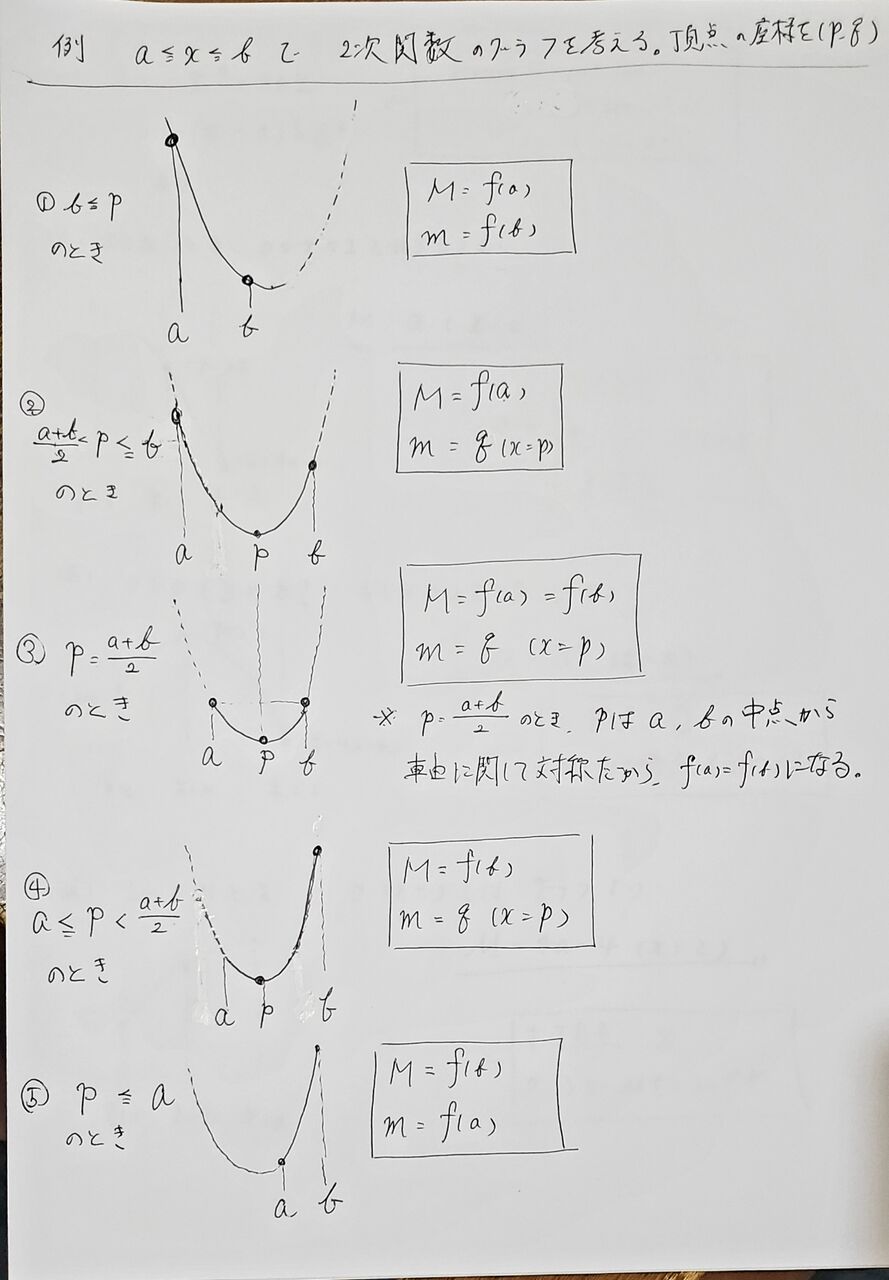 例 a≦x≦bで 2次関数のグラフを考える。頂点の座標を(p.q)
① b≦p
のとき
a
b
M=f(a)
m=f(b)
②
(a+b)/2<p≦b
のとき
a p b
M=f(a)
m=q (x=p)
③ p=(a+b)/2
のとき
a p b
M=f(a)=f(b)
m=q (x=p)
※ p=(a+b)/2 のとき、pはa, bの中点、から
軸に関して対称だから、f(a)=f(b)になる。
④
a≦p<(a+b)/2
のとき
a p b
M=f(b)
m=q (x=p)
⑤ p≦a
のとき
a b
M=f(b)
m=f(a)